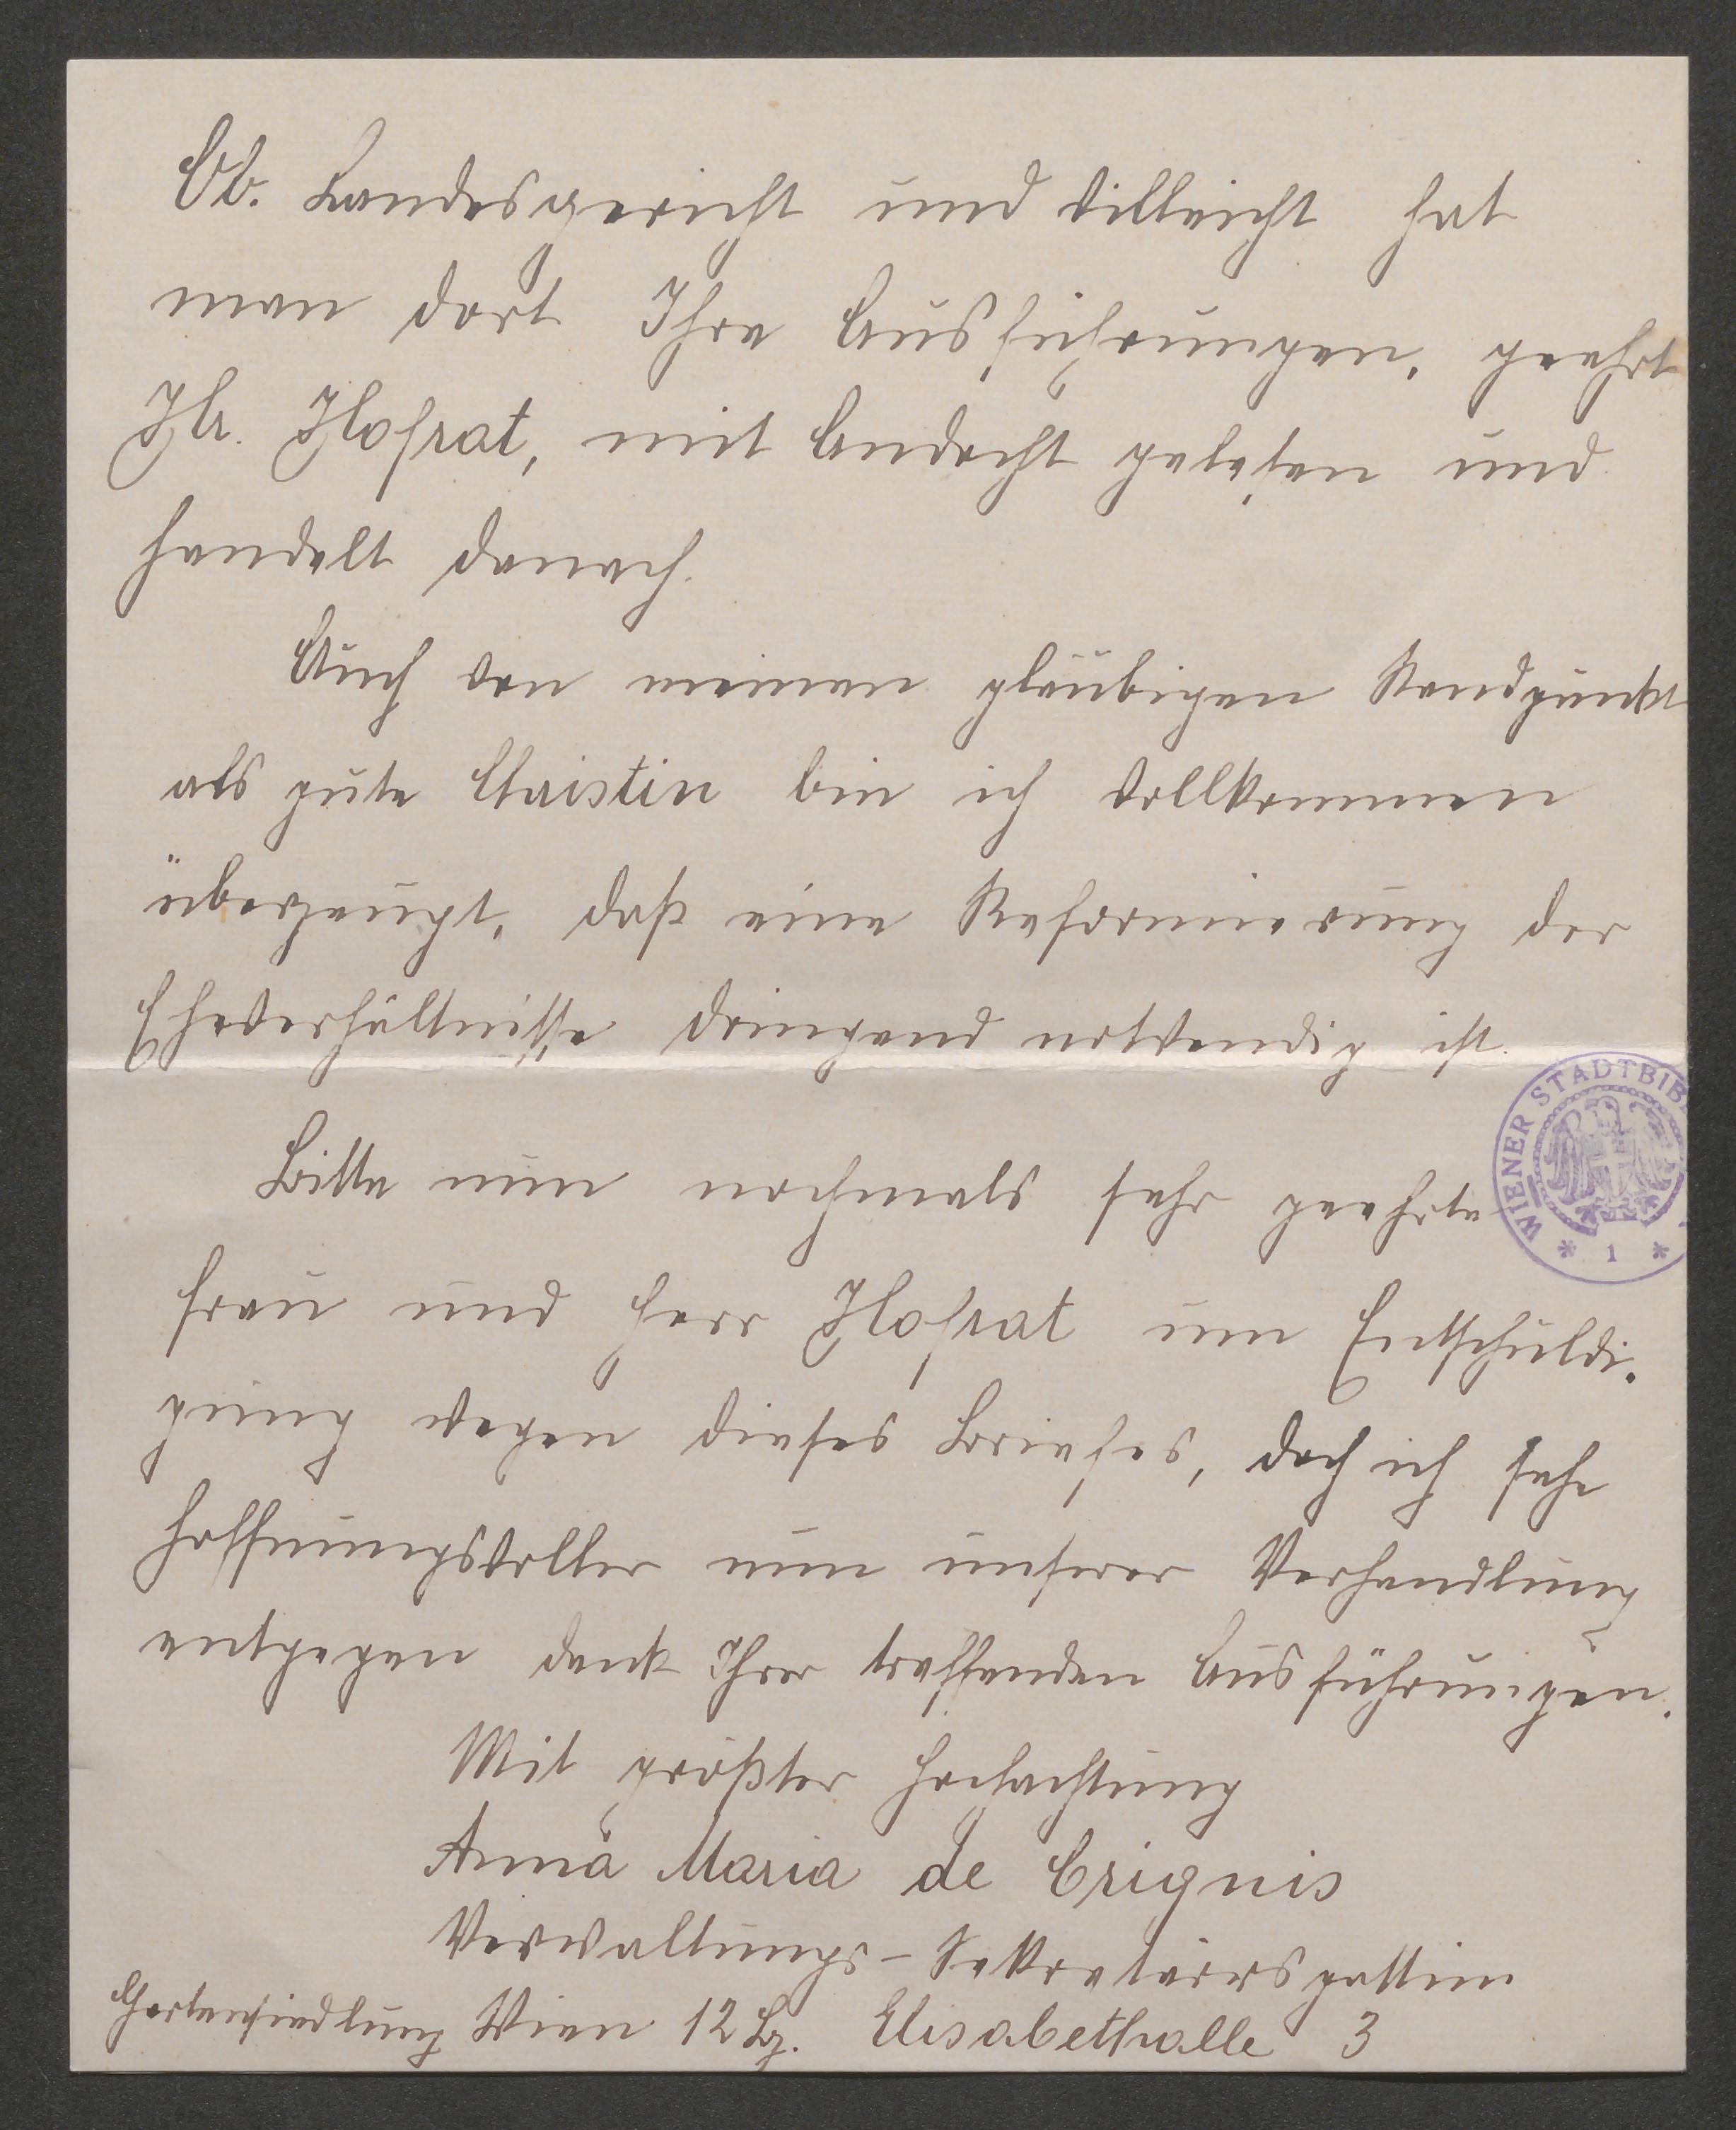 Ob. Landesgericht und villeicht hat
man dort Ihre Ausführungen, geehrt
Hr. Hofrat, mit Andacht gelesen und
handelt danach.
Auch von meinem gläubigen Standpunkt
als gute Christin bin ich vollkommen
überzeugt, daß eine Reformierung der
Eheverhältnisse dringend notwendig ist.
Bitte nun nochmals sehr geehrte
Frau und Herr Hofrat um Entschuldi-
gung wegen dieses Briefes, doch ich sehe
hoffnungsvoller nun unserer Verhandlung
entgegen dank Ihrer treffenden Ausführungen.
Mit größter Hochachtung
Anna Maria de Crignis
Verwaltungs-Sekretärsgattin
Gartensiedlung Wien 12 Bz. Elisabethalle 3
WIENER STADTBIB
* 1 *